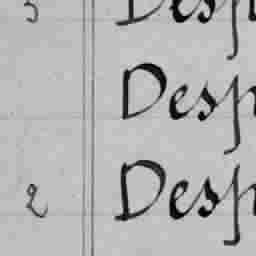 5 Desp
Desp
2 Desp